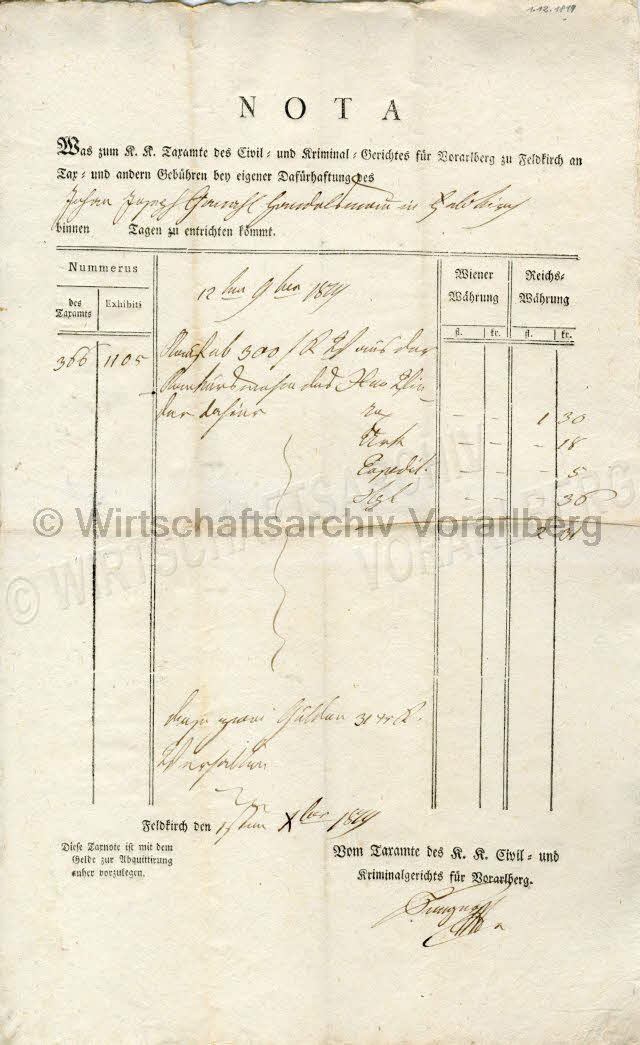 1.12.1819
NOTA
Was zum K. K. Taxamte des Civil- und Kriminal-Gerichtes für Vorarlberg zu Feldkirch an
Tax- und andern Gebühren bey eigener Dafürhaftung des
Johan Joseph Ganahl Handelsmann in Feldkirch
binnen Tagen zu entrichten kömmt.
Nummerus
des Taxamts
Exhibiti
12ten 9ber 1819
Wiener Währung
fl. kr.
Reichs-Währung
fl. kr.
366 1105 ab 300 f aus der
des
dahier Tax - - 1 30
- - - 18
Expedit. - - - 5
- - - 36
© Wirtschaftsarchiv Vorarlberg
© WIRTSCHAFTSARCHIV VORARLBERG
zwei Gulden
erhalten
Feldkirch den 1sten Xber 1819
Diese Taxnote ist mit dem
Gelde zur Abquittirung
anher vorzulegen.
Vom Taxamte des K. K. Civil- und
Kriminalgerichts für Vorarlberg.